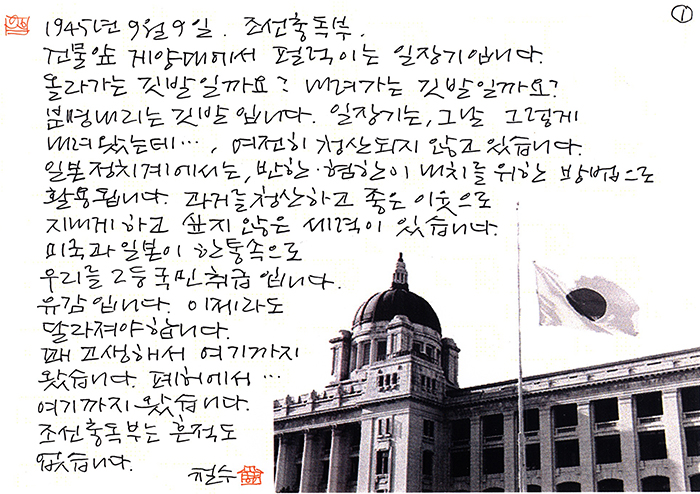 ①
1945년 9월 9일. 조선총독부.
건물앞 게양대에서 펄럭이는 일장기입니다.
올라가는 깃발일까요? 내려가는 깃발일까요?
분명내리는 깃발입니다. 일장기는, 그날 그렇게
내려왔는데…, 여전히 청산되지 않고 있습니다.
일본정치계에서는, 반한·혐한이 내치를 위한 방법으로
활용됩니다. 과거를청산하고 좋은 이웃으로
지내게 하고 싶지 않은 세력이 있습니다.
미국과 일본이 한통속으로
우리를 2등국민취급입니다.
유감입니다. 이제라도
달라져야합니다.
꽤 고생해서 여기까지
왔습니다. 폐허에서…
여기까지 왔습니다.
조선총독부는 흔적도
없습니다.
철수